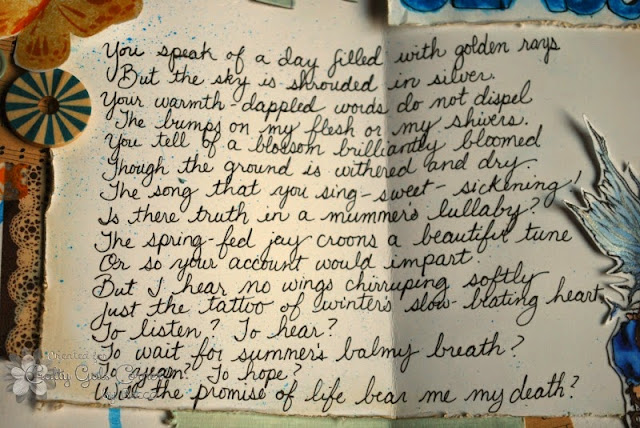 You speak of a day filled with golden rays
But the sky is shrouded in silver.
Your warmth-dappled words do not dispel
The bumps on my flesh or my shivers.
You tell of a blossom brilliantly bloomed
Though the ground is withered and dry.
The song that you sing-sweet-sickening!
Is there truth in a mummer's lullaby?
The spring-fed jay croons a beautiful tune
Or so your account would impart.
But I hear no wings chirruping softly
Just the tattoo of winter's slow-beating heart
To listen? To hear?
To wait for summer's balmy breath?
To yearn? To hope?
Will the promise of life bear me my death?
Created for